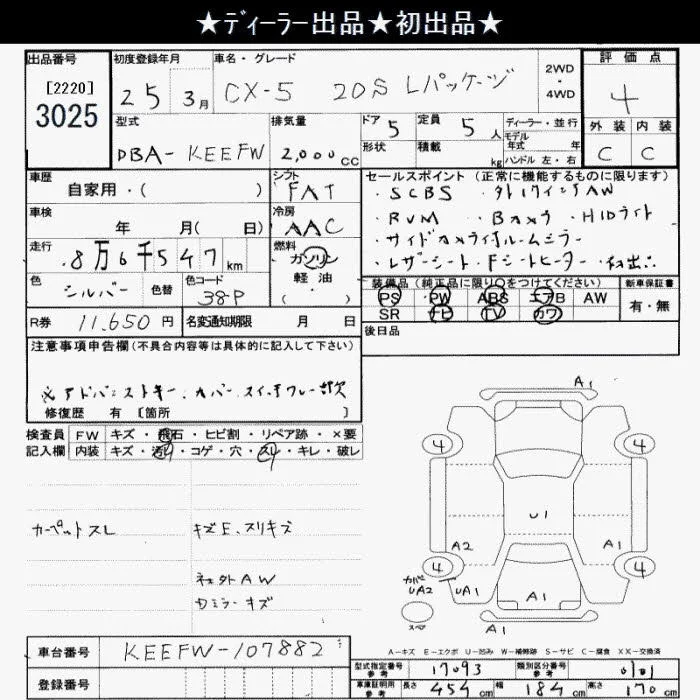 ★ディーラー出品★初出品★
出品番号 初度登録年月 車名・グレード 評価点
[2220] 25 3月 CX-5 20S Lパッケージ 2WD・4WD 4
3025
型式 排気量 ドア 5 定員 5人 ディーラー・並行 外装 内装
モデル年式 年
DBA-KEEFW 2,000cc 形状 積載 kg ハンドル 左・右 C C
車歴 シフト セールスポイント (正常に機能するものに限ります)
自家用・( ) FAT ・SCBS ・外17インチAW
車検 冷房 ・RVM ・Bカメラ ・HIDライト
年 月( 日) AAC ・サイドカメラ付ルームミラー
走行 燃料 ・レザーシート・Fシートヒーター
8万6千547km ガソリン
色 色替 色コード 軽油 装備品 (純正品に限り○をつけてください) 新車保証書
シルバー 38P ( ) PS PW ABS エアB AW 有・無
SR ナビ TV カワ
R券 11,650円 名変通知期限 月 日 後日品
注意事項申告欄(不具合内容等は具体的に記入して下さい)
※アドバンストキー・カバー・スイッチフレー欠
修復歴 有 [箇所 ]
検査員 FW キズ・飛石・ヒビ割・リペア跡・×要
記入欄 内装 キズ・汚れ・コゲ・穴・スレ・キレ・破レ
カーペットスレ キズE、スリキズ
社外AW
カミラーキズ
A1
4 4
U1
A2 A1
4 4
カバーUA2 UA1 A1
スペア
A1
A-キズ E-エクボ U-凹み W-補修跡 S-サビ C-腐食 XX-交換済
車台番号 KEEFW-107882
型式指定番号 参考 17093 類別区分番号 参考
登録番号
車庫証明用 参考 長さ 454cm 幅 184cm 高さ 170cm